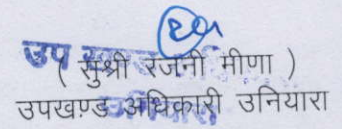 उप
( सुश्री रजनी मीणा )
उपखण्ड अधिकारी उनियारा